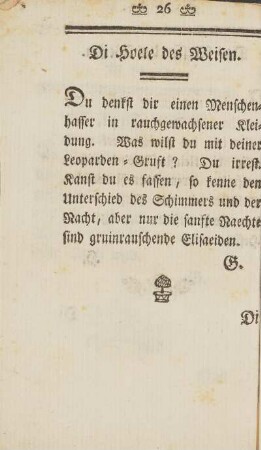 26
Di Hoele des Weisen.
Du denkst dir einen Menschen-
hasser in rauchgewachsener Klei-
dung. Was wilst du mit deiner
Leoparden-Gruft? Du irrest.
Kanst du es fassen, so kenne den
Unterschied des Schimmers und der
Nacht, aber nur die sanfte Naechte
sind gruinrauschende Elisaeiden.
G.
Di